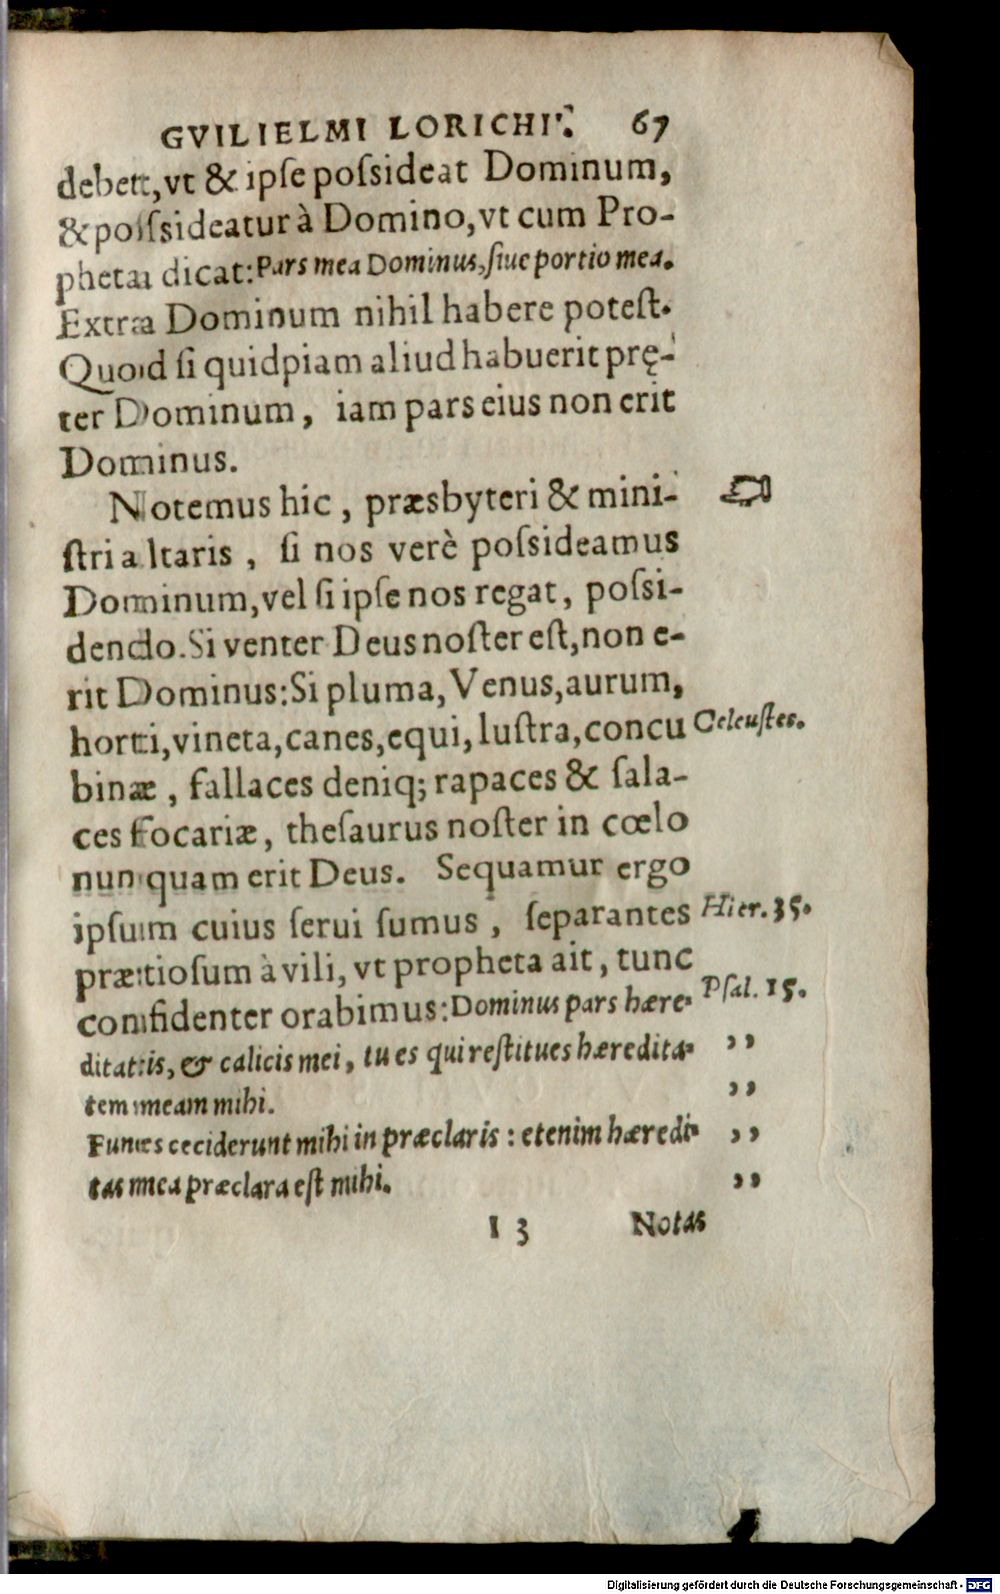 GVILIELMI LORICHI'. 67
debet, vt & ipſe poſsideat Dominum,
& poſsideatur à Domino, vt cum Pro-
pheta dicat: Pars mea Dominus, ſiue portio mea.
Extra Dominum nihil habere poteſt.
Quod ſi quidpiam aliud habuerit prę-
ter Dominum, iam pars eius non erit
Dominus.
Notemus hic, præsbyteri & mini-
ſtri altaris, ſi nos verè poſsideamus
Dominum, vel ſi ipſe nos regat, poſsi-
dendo. Si venter Deus noſter eſt, non e-
rit Dominus: Si pluma, Venus, aurum,
horti, vineta, canes, equi, luſtra, concu Celeuſtes.
binæ, fallaces deniq; rapaces & ſala-
ces focariæ, theſaurus noſter in cœlo
nunquam erit Deus. Sequamur ergo
ipſum cuius ſerui ſumus, ſeparantes Hier. 35.
prætioſum à vili, vt propheta ait, tunc
confidenter orabimus: Dominus pars hære- Pſal. 15.
ditatis, & calicis mei, tu es qui reſtitues hæredita- ,,
tem meam mihi. ,,
Funes ceciderunt mihi in præclaris: etenim hæredi- ,,
tas mea præclara eſt mihi. ,,
I 3 Notas
Digitalisierung gefördert durch die Deutsche Forschungsgemeinschaft - DFG